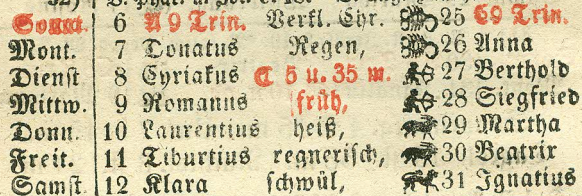 Sonnt. 6 A 9 Trin. Verkl. Chr. 25 C 9 Trin.
Mont. 7 Donatus Regen, 26 Anna
Dienst 8 Cyriakus ☾ 5 u. 35 m. 27 Berthold
Mittw. 9 Romanus früh, 28 Siegfried
Donn. 10 Laurentius heiß, 29 Martha
Freit. 11 Tiburtius regnerisch, 30 Beatrix
Samst. 12 Klara schwül, 31 Ignatius